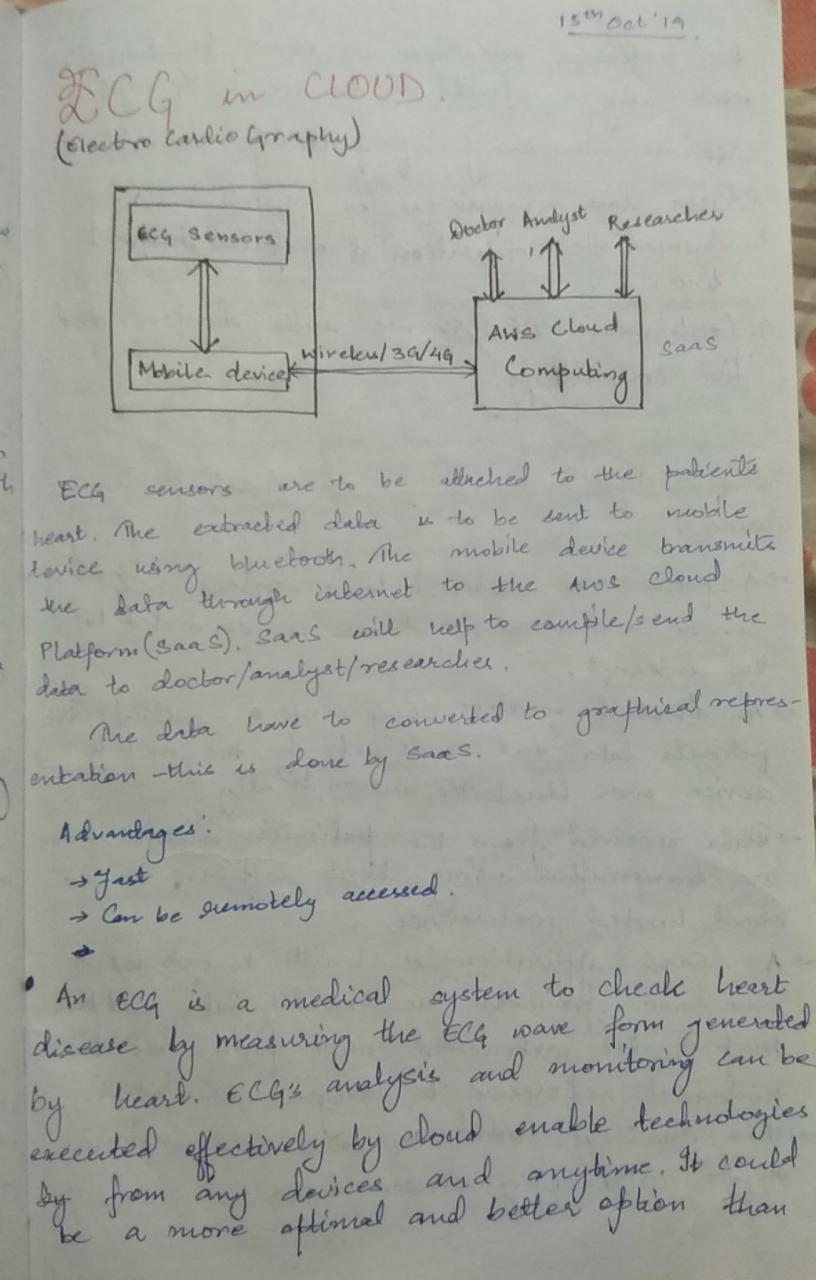 15th Oct '19
ECG in CLOUD.
(Electro Cardio Graphy)
ECG Sensors
Mobile device
Wireless/3G/4G
Doctor Analyst Researcher
AWS Cloud
Computing
SaaS
ECG sensors are to be attached to the patients
heart. The extracted data is to be sent to mobile
device using bluetooth. The mobile device transmits
the data through internet to the AWS cloud
Platform (SaaS). SaaS will help to compile/send the
data to doctor/analyst/researcher.
The data have to converted to graphical repres-
entation - this is done by SaaS.
Advantages:
→ Fast
→ Can be remotely accessed.
→
• An ECG is a medical system to check heart
disease by measuring the ECG wave form generated
by heart. ECG's analysis and monitoring can be
executed effectively by cloud enable technologies
by from any devices and anytime. It could
be a more optimal and better option than